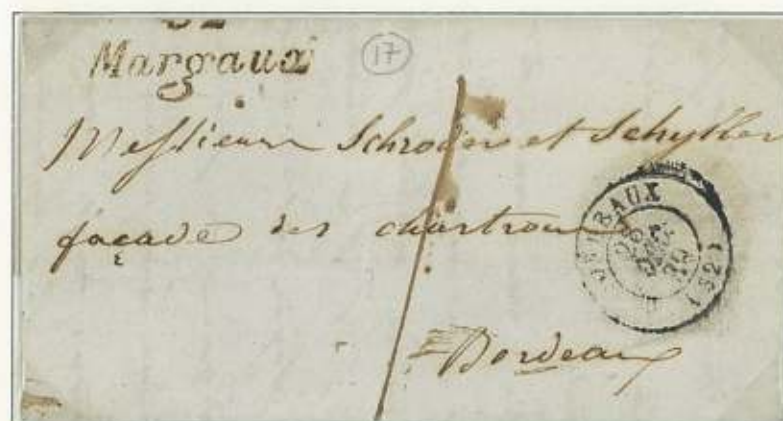 32
Margaux
17
Messieurs Schroder et Schyller
façade des chartrons
Bordeaux
BORDEAUX
(32)